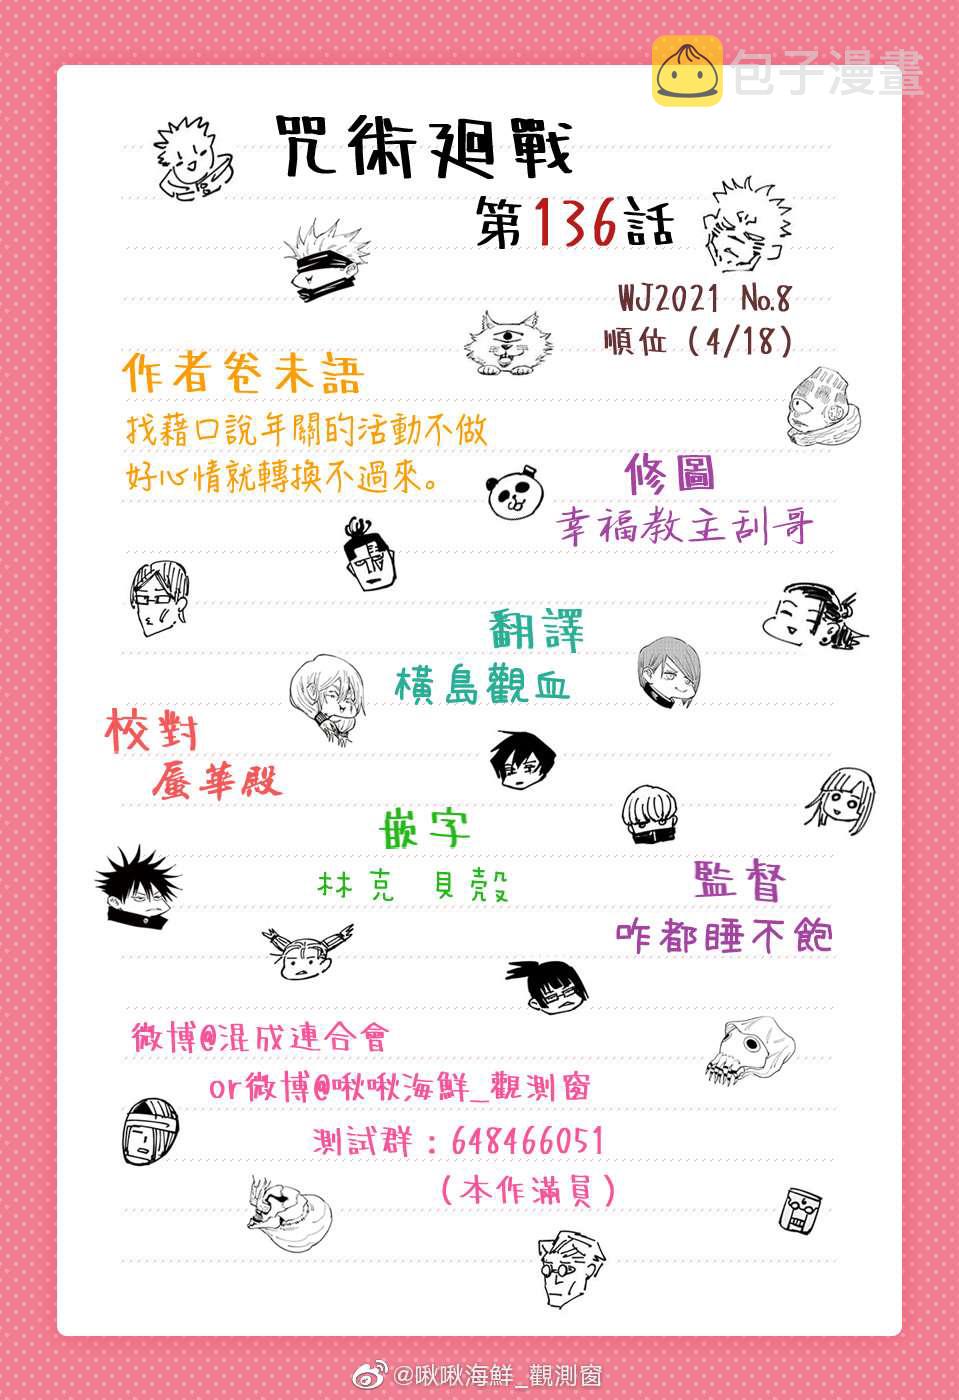 包子漫畫
咒術廻戰
第136話
WJ2021 No.8
順位（4/18）
作者卷末語
找藉口說年關的活動不做
好心情就轉換不過來。
修圖
幸福教主刮哥
翻譯
橫島觀血
校對
蜃華殿
嵌字
林克 貝殼
監督
咋都睡不飽
微博@混成連合會
or微博@啾啾海鮮_觀測窗
測試群：648466051
（本作滿員）
@啾啾海鮮_觀測窗